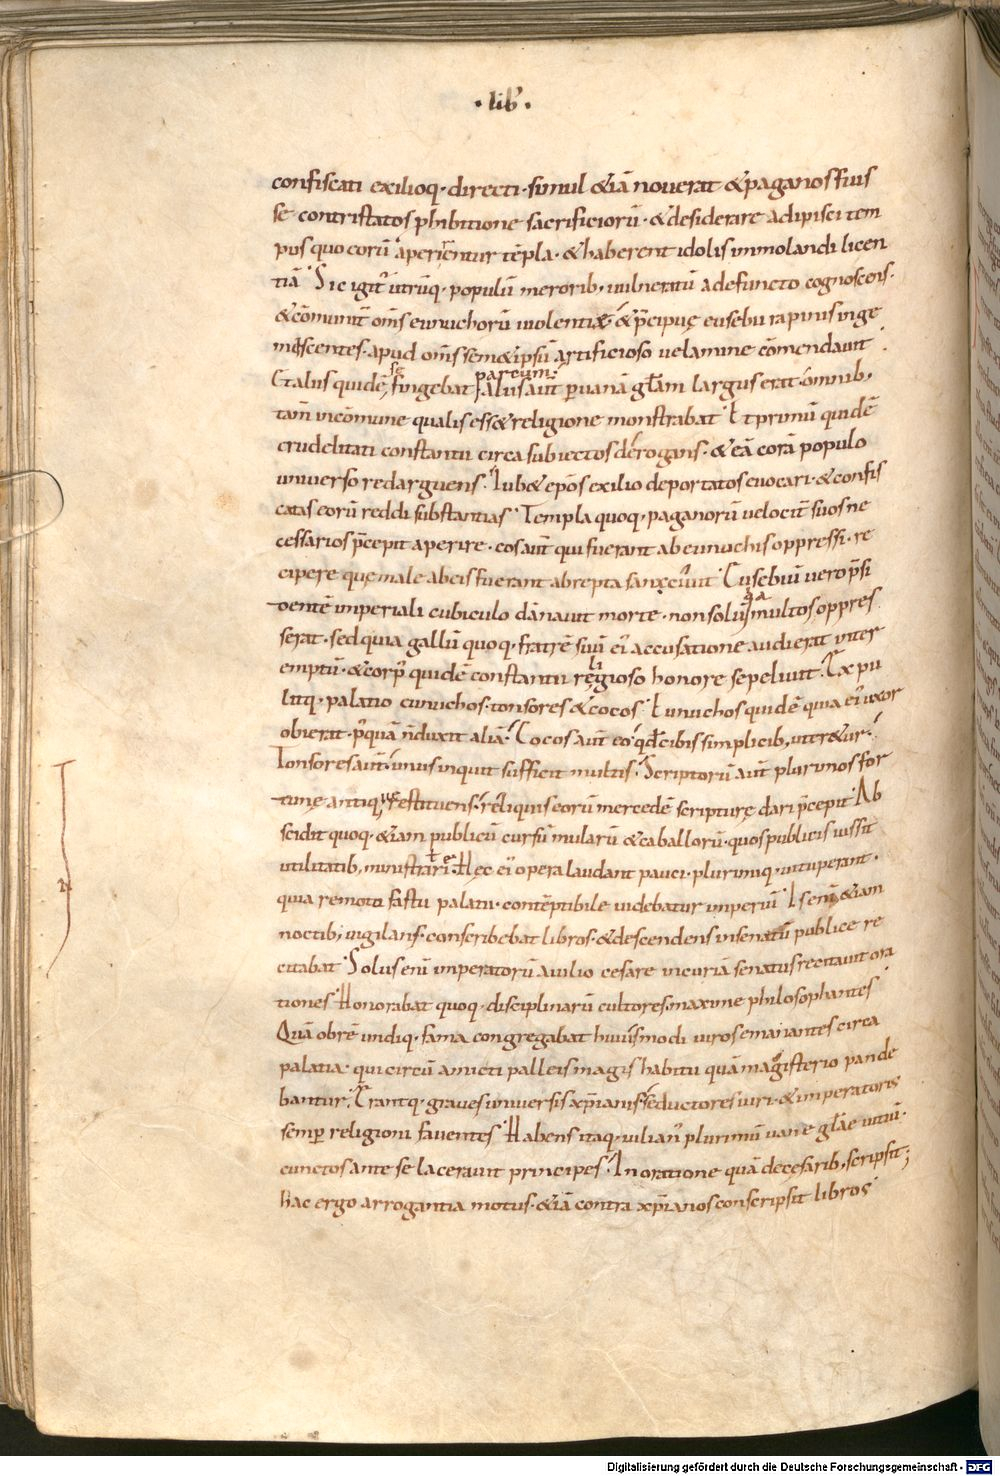 · lib̅ ·
confiscati exilioq· directi· simul &iā noverat &paganos suis
se contristatos phibitione sacrificiorū· &desiderare adipisci tem
pus quo eorū aperirentur tēpla· &haberent idolis immolandi licen
tiā Sic igit̄ utrūq· populū meroribꝫ vulneratū adefuncto cognoscens·
&cōmunit̄ om̄s eunuchorū violentiā &p̄cipuę eusebii rapinis inge
miscentes· apud om̄s sem&ipsū artificioso velamine cōmendavit
Et alius quidē se fingebat parcum· alius aut̄ p vanā gl̄am largus erat· omnibꝫ
tam̄ incōmune qualis ess& religione monstrabat Et primū quidē
crudelitati constantii circa subiectos derogans· & eā corā populo
universo redarguens· Iub& ep̄os exilio deportatos evocari· & confis
catas eorū reddi substantias Templa quoq· paganorū velocit̄ suos ne
cessarios p̄cepit aperire· eos aut̄ qui fuerant ab eunuchis oppressi· re
cipere quę male ab eis fuerant abrepta sancivit Eusebiū vero p̄si
dentē imperiali cubiculo dānavit morte· non solū qa multos oppres
serat· sed quia gallū quoq· fratrē suū ei᷒ accusatione audierat inter
emptū· & corp᷒ quidē constantii religioso honore sepelivit· Expu
litq· palatio eunuchos· tonsores & cocos· Eunuchos quidē quia ei᷒ uxor
obierat· p᷒quā n̄ duxit aliā· Cocos aut̄ eo qd̄ cibis simplicibꝫ uter&ur·
Tonsores aut̄· unus inquit sufficit multis· Scriptorū aut̄ plurimos for
tunę antiquę restituens· reliquis eorū mercedē scripturę dari p̄cepit Ab
scidit quoq· &iam publicū cursū mularū & caballorū· quos publicis iussit
utilitatibꝫ ministrari· Hęc ei᷒ opera laudant pauci· plurimiq· vituperant·
quia remoto fastu palatii· contēptibile videbatur imperiū Is enī &iam
noctibꝫ vigilans· conscribebat libros· & descendens in senatū publice re
citabat Solus enī imperatorū a iulio cesare in curiā senatus recitavit ora
tiones Honorabat quoq· disciplinarū cultores· maxime philosophantes
Quā obrē undiq· fama congregabat huiusmodi viros emanantes circa
palatia· qui circū amicti palleis magis habitu quā magisterio pande
bantur; Erantq· graves universis xp̄ianis seductores viri· & imperatoris
semp religioni faventes Habens itaq· iulian᷒ plurimū vanę gl̄ae vitiū·
cunctos ante se laceravit principes· In oratione quā de cesaribꝫ scripsit;
hac ergo arrogantia motus· &iā contra xp̄ianos conscripsit libros
Digitalisierung gefördert durch die Deutsche Forschungsgemeinschaft - DFG